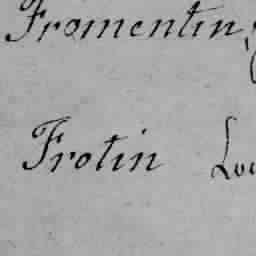 Fromentin,
Frotin Lou